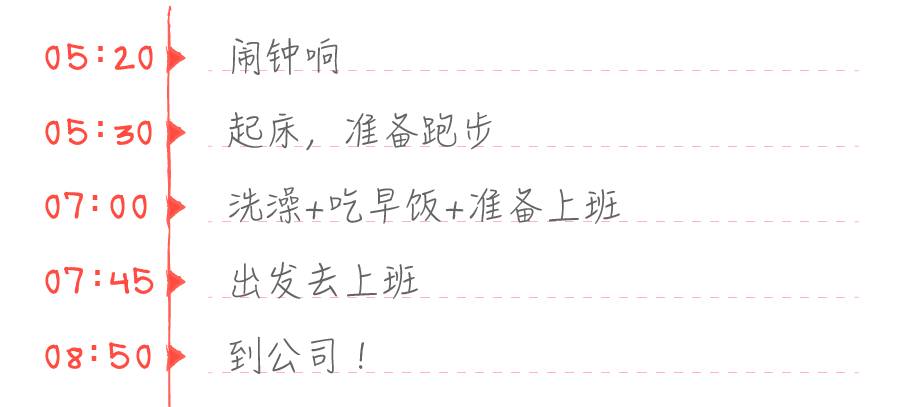 05:20 闹钟响
05:30 起床，准备跑步
07:00 洗澡+吃早饭+准备上班
07:45 出发去上班
08:50 到公司！